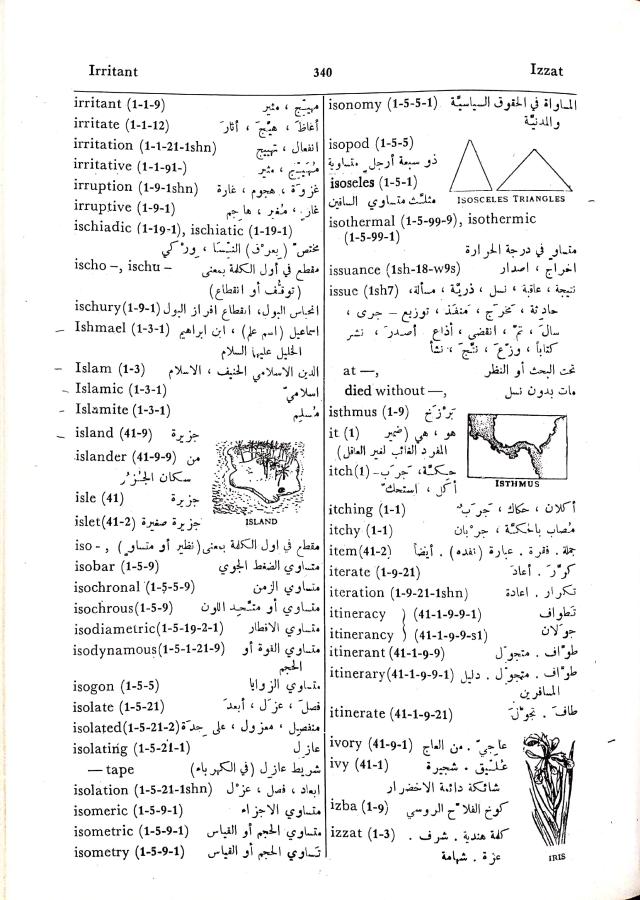 Irritant 340 Izzat
irritant (1-1-9) مهيّج ، مثير
irritate (1-1-12) أغاظَ ، هيَّجَ ، أثارَ
irritation (1-1-21-1shn) انفعال ، تهييج
irritative (1-1-91-) مُهَيّج ، مثير
irruption (1-9-1shn) غزوَة ، هجوم ، غارة
irruptive (1-9-1) غازٍ ، مُغير ، هاجم
ischiadic (1-19-1), ischiatic (1-19-1)
مختصّ
ischo –, ischu – مقطع في أول الكلمة بمعنى
(توقُّف أو انقطاع)
ischury(1-9-1) انحباس البول، انقطاع افراز البول
Ishmael (1-3-1) اسماعيل (اسم علم) ، ابن ابراهيم
الخليل عليهما السلام
Islam (1-3) الدين الاسلامي الحنيف ، الاسلام
Islamic (1-3-1) اسلاميّ
Islamite (1-3-1) مُسلِم
island (41-9) جزيرة
islander (41-9-9) من
سكان الجُزُر
isle (41) جزيرة
islet(41-2) جزيرة صغيرة
ISLAND
iso- , مقطع في اول الكلمة بمعنى(نظير أو متساوٍ)
isobar (1-5-9) متساوي الضغط الجوي
isochronal (1-5-5-9) متساوي الزمن
isochrous(1-5-9) متساوي أو متّحد اللون
isodiametric(1-5-19-2-1) متساوي الاقطار
isodynamous(1-5-1-21-9) متساوي القوة أو
الحجم
isogon (1-5-5) متساوي الزوايا
isolate (1-5-21) فصلَ ، عزَلَ ، أبعدَ
isolated(1-5-21-2) منفصِل ، معزول ، على حِدَة
isolating (1-5-21-1) عازِل
— tape شريط عازِل (في الكهرباء)
isolation (1-5-21-1shn) ابعاد ، فصل ، عزْل
isomeric (1-5-9-1) متساوي الاجزاء
isometric (1-5-9-1) متساوي الحجم أو القياس
isometry (1-5-9-1) تَساوي الحجم أو القياس
isonomy (1-5-5-1) المساواة في الحقوق السياسيَّة
والمدنيَّة
isopod (1-5-5)
ذو سبعة أرجل متساوية
isoseles (1-5-1)
مثلَّث متساوي الساقين
ISOSCELES TRIANGLES
isothermal (1-5-99-9), isothermic
(1-5-99-1)
متساوٍ في درجة الحرارة
issuance (1sh-18-w9s) اخراج ، اصدار
issue (1sh7) نتيجة ، عاقبة ، نسل ، ذريَّة ، مسألة،
حادثة ، مَخرَج ، مَنفَذ ، توزيع – جرى ،
سالَ ، تمّ ، انقضى ، أذاع أصدَرَ ، نشر
كتاباً ، وزَّعَ ، نَتَجَ ، نشأ
at —, تحت البحث أو النظر
died without —, مات بدون نسل
isthmus (1-9) بَرْزَخ
it (1) هو ، هي (ضمير
المفرد الغائب لغير العاقل)
itch(1) حِكَّة، جَرَب–
أكل ، استحكّ
ISTHMUS
itching (1-1) أكلان ، حكاك ، جَرَبٌ
itchy (1-1) مُصاب بالحكَّة ، جرْبان
item(41-2) جملة . فقرة . عبارة (نفده) . أيضاً
iterate (1-9-21) كرَّرَ . أعادَ
iteration (1-9-21-1shn) تكرار . اعادة
itineracy (41-1-9-9-1) تَطواف
itinerancy (41-1-9-9-s1) جوَلان
itinerant (41-1-9-9) طوَّاف . متجوّل
itinerary(41-1-9-9-1) طوَّاف . متجوّل . دليل
المسافرين
itinerate (41-1-9-21) طافَ . تجوَّلَ
ivory (41-9-1) عاجيّ . من العاج
ivy (41-1) عُلَّيق . شجيرة
شائكة دائمة الاخضرار
izba (1-9) كوخ الفلاّح الروسي
izzat (1-3) كلمة هندية . شرف .
عزة . شهامة
IRIS